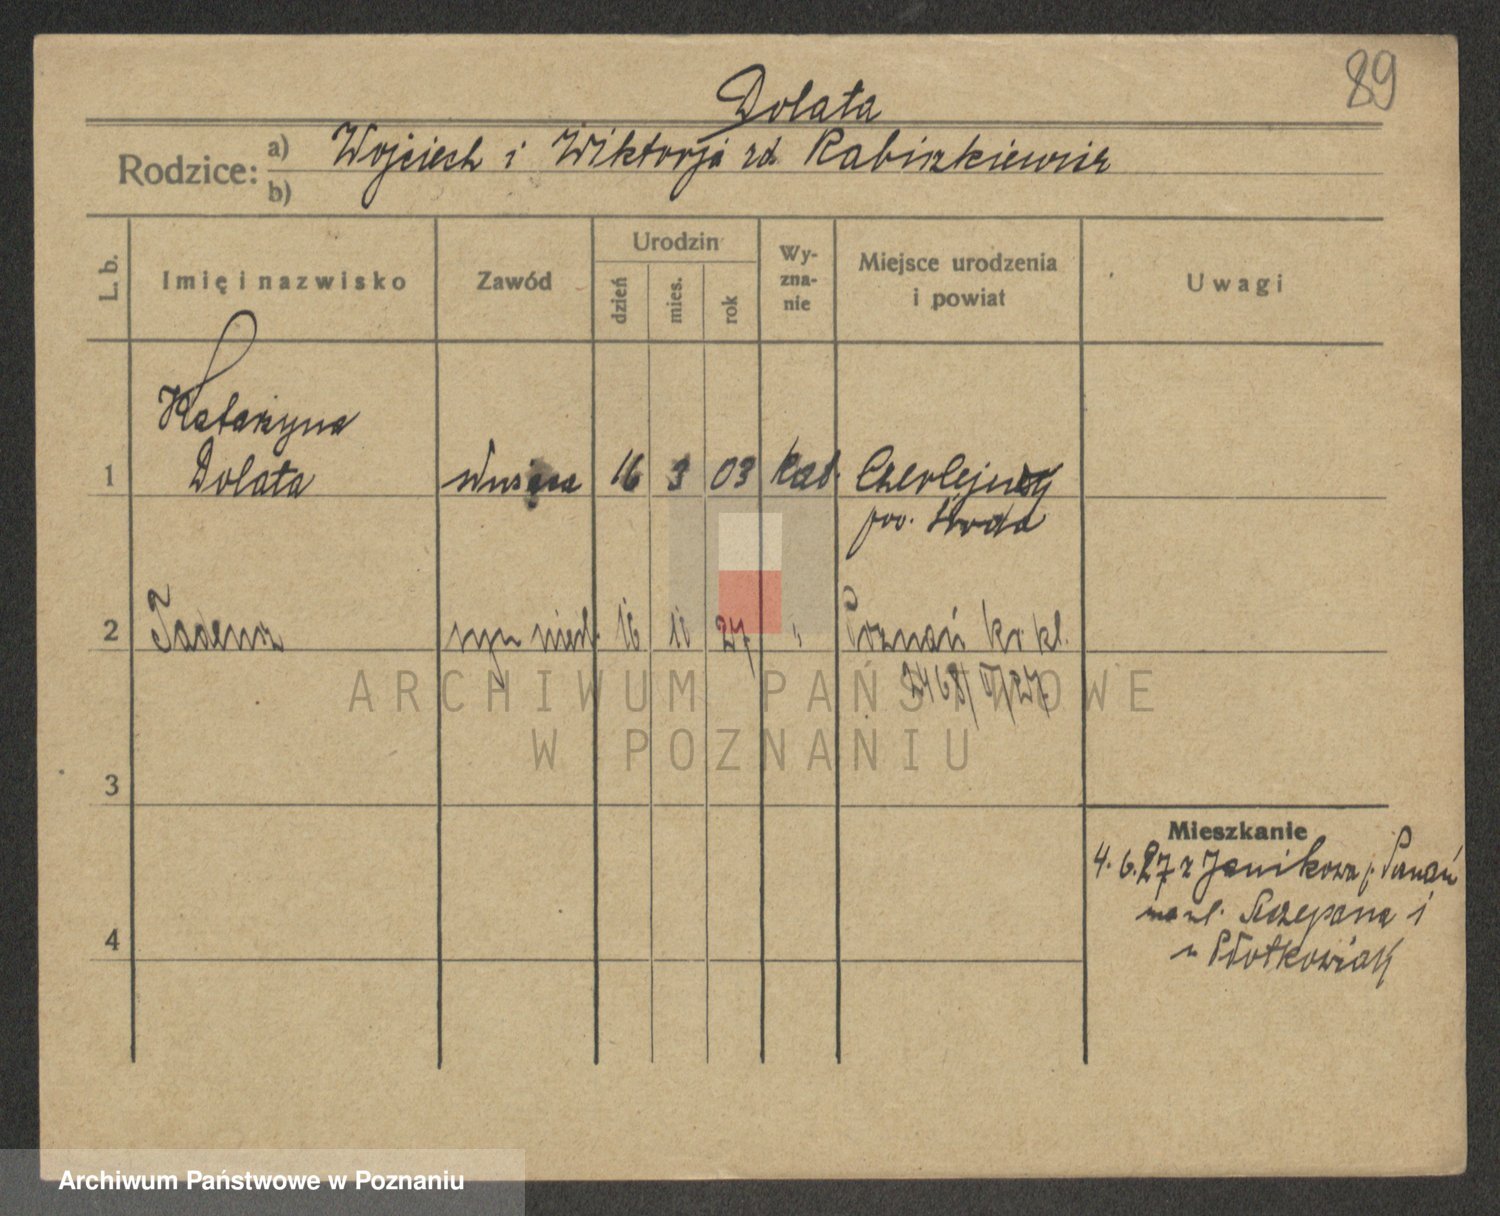 89
Dolata
Rodzice: a) Wojciech i Wiktorja zd Rabiszkiewicz
b)
L. b.
Imię i nazwisko
Zawód
Urodzin
dzień
mies.
rok
Wy-
zna-
nie
Miejsce urodzenia
i powiat
Uwagi
Katarzyna
1 Dolata 16 3 03 kat. Czerlejno
pow. Środa
2 Tadeusz syn nieśl. 16 10 27 " Poznań
2468/
ARCHIWUM PAŃSTWOWE
W POZNANIU
3
Mieszkanie
4. 6. 27 z Janikowa p. Poznań
Szczepana i
Płotkowiak
4
Archiwum Państwowe w Poznaniu